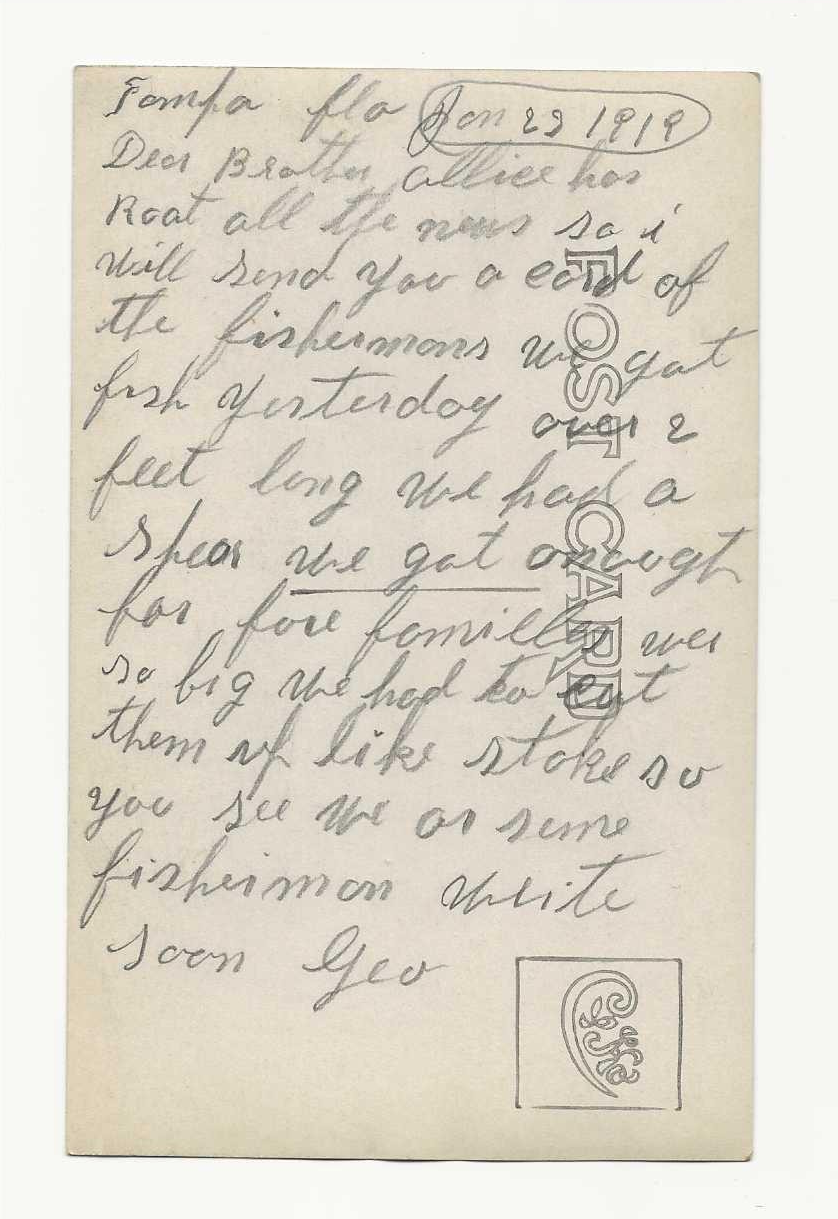 Tampa fla Jan 22 1919
Dear Brother allice has
Roat all the news so i
will send you a card of
the fishermans we gat
fish yesterday over 2
feet long we had a
spear we gat onougth
for fore familles wer
so big we had to cut
them up like stake so
you see we ar some
fisheiman write
soon Geo
POST CARD